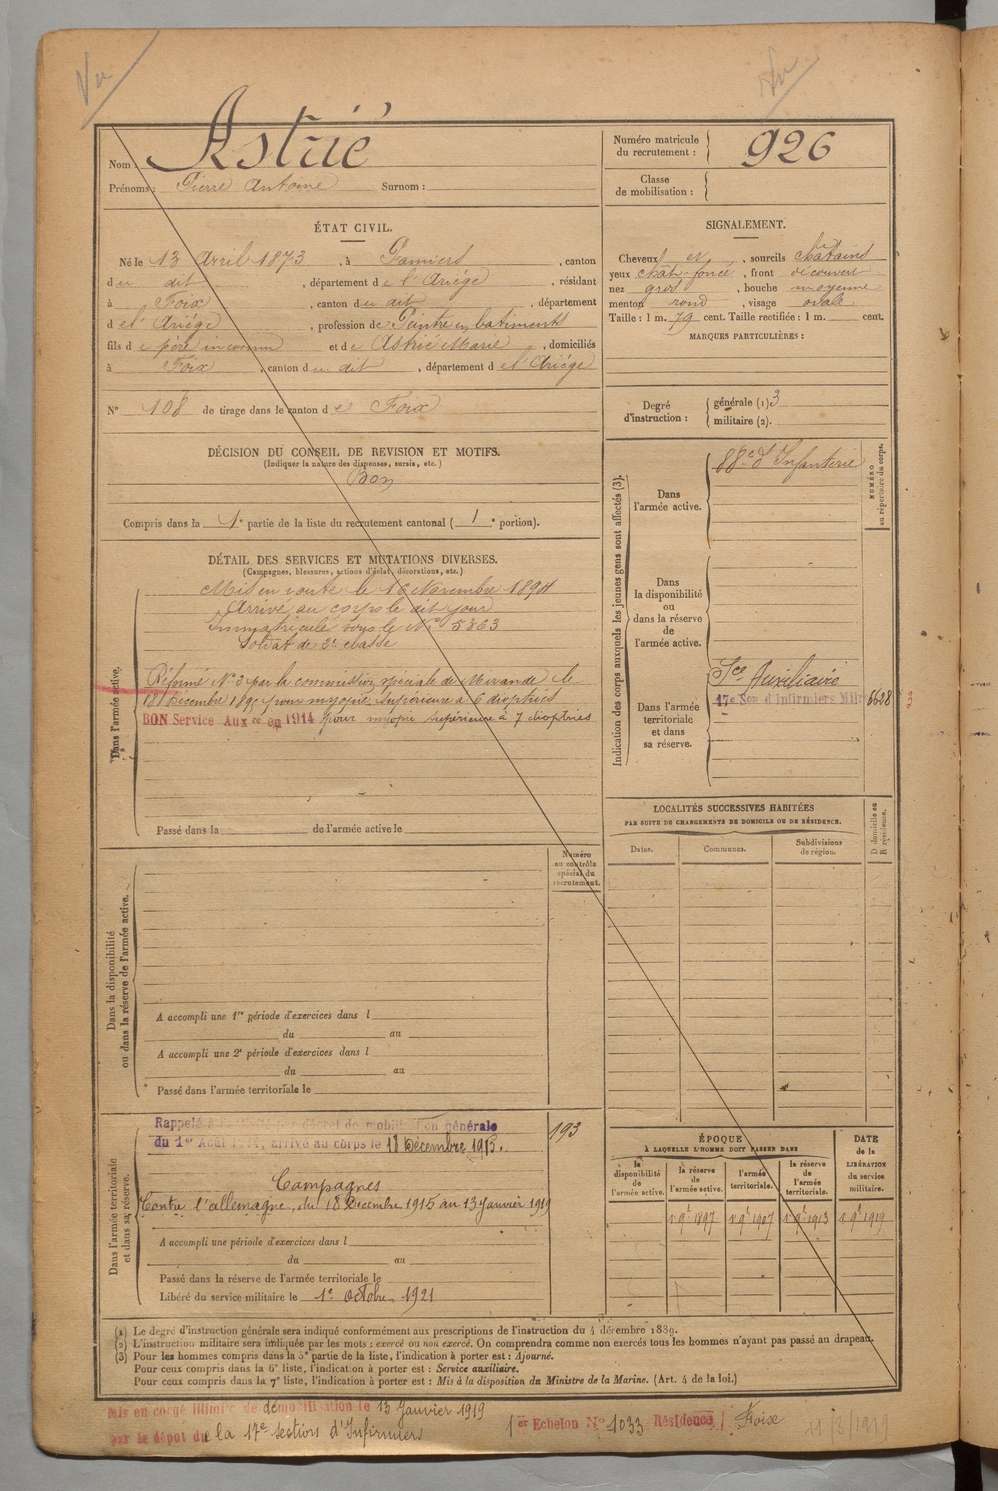 Vu
Vu
Nom : Astrié
Prénoms : Pierre Antoine Surnom :
Numéro matricule du recrutement : 926
Classe de mobilisation :
ÉTAT CIVIL.
Né le 13 Avril 1873, à Pamiers, canton
du dit, département de l'Ariége, résidant
à Foix, canton du dit, département
de l'Ariége, profession de Peintre en batiments
fils de père inconnu et de Astrié Marie, domiciliés
à Foix, canton du dit, département de l'Ariége
N° 108 de tirage dans le canton de Foix
SIGNALEMENT.
Cheveux et, sourcils chatains
yeux chat. foncé, front découvert
nez gros, bouche moyenne
menton rond, visage ovale
Taille : 1 m. 79 cent. Taille rectifiée : 1 m. cent.
MARQUES PARTICULIÈRES :
Degré d'instruction : générale (1) 3
militaire (2).
DÉCISION DU CONSEIL DE REVISION ET MOTIFS.
(Indiquer la nature des dispenses, sursis, etc.)
Bon
Compris dans la 1e partie de la liste du recrutement cantonal (1e portion).
DÉTAIL DES SERVICES ET MUTATIONS DIVERSES.
(Campagnes, blessures, actions d'éclat, décorations, etc.)
Dans l'armée active.
Mis en route le 16 Novembre 1894
Arrivé au corps le dit jour
Immatriculé sous le N° 5363
Soldat de 2e classe
Réformé N° 2 par la commission spéciale de Mirande le
18 Décembre 1895 pour myopie supérieure à 6 dioptries
BON Service Auxre en 1914 pour myopie supérieure à 7 dioptries
Passé dans la de l'armée active le
Indication des corps auxquels les jeunes gens sont affectés (3).
NUMÉRO au répertoire du corps.
Dans l'armée active.
88e d'Infanterie
Dans la disponibilité ou dans la réserve de l'armée active.
Dans l'armée territoriale et dans sa réserve.
Sce Auxiliaire
17e Son d'Infirmiers Milres 6698
LOCALITÉS SUCCESSIVES HABITÉES
PAR SUITE DE CHANGEMENTS DE DOMICILE OU DE RÉSIDENCE.
Dates. Communes. Subdivisions de région. D domicile ou R résidence.
Numéro au contrôle spécial du recrutement.
Dans la disponibilité ou dans la réserve de l'armée active.
A accompli une 1re période d'exercices dans l
du au
A accompli une 2e période d'exercices dans l
du au
Passé dans l'armée territoriale le
Dans l'armée territoriale et dans sa réserve.
Rappelé à l'activité par décret de mobilisation générale
du 1er Août 1914, arrivé au corps le 18 Décembre 1915.
193
Campagnes
Contre l'allemagne, du 18 Décembre 1915 au 13 Janvier 1919
A accompli une période d'exercices dans l
du au
Passé dans la réserve de l'armée territoriale le
Libéré du service militaire le 1er octobre 1921
ÉPOQUE
À LAQUELLE L'HOMME DOIT PASSER DANS
DATE de la LIBÉRATION du service militaire.
la disponibilité de l'armée active. la réserve de l'armée active. l'armée territoriale. la réserve de l'armée territoriale.
1 9bre 1897 1 9bre 1907 1 9bre 1913 1 9bre 1919
(1) Le degré d'instruction générale sera indiqué conformément aux prescriptions de l'instruction du 4 décembre 1889.
(2) L'instruction militaire sera indiquée par les mots : exercé ou non exercé. On comprendra comme non exercés tous les hommes n'ayant pas passé au drapeau.
(3) Pour les hommes compris dans la 5e partie de la liste, l'indication à porter est : Ajourné.
Pour ceux compris dans la 6e liste, l'indication à porter est : Service auxiliaire.
Pour ceux compris dans la 7e liste, l'indication à porter est : Mis à la disposition du Ministre de la Marine. (Art. 4 de la loi.)
Mis en congé illimité de démobilisation le 13 Janvier 1919
par le dépôt de la 17e section d'Infirmiers
1er Echelon N° 1033 Résidence Foix 11/3/1919